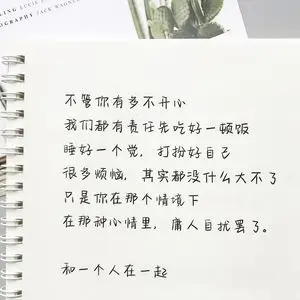 LUCIE
OGRAPHY JACK WAGNER
不管你有多不开心
我们都有责任先吃好一顿饭
睡好一个觉，打扮好自己
很多烦恼，其实都没什么大不了
只是你在那个情境下
在那种心情里，庸人自扰罢了。
和一个人在一起